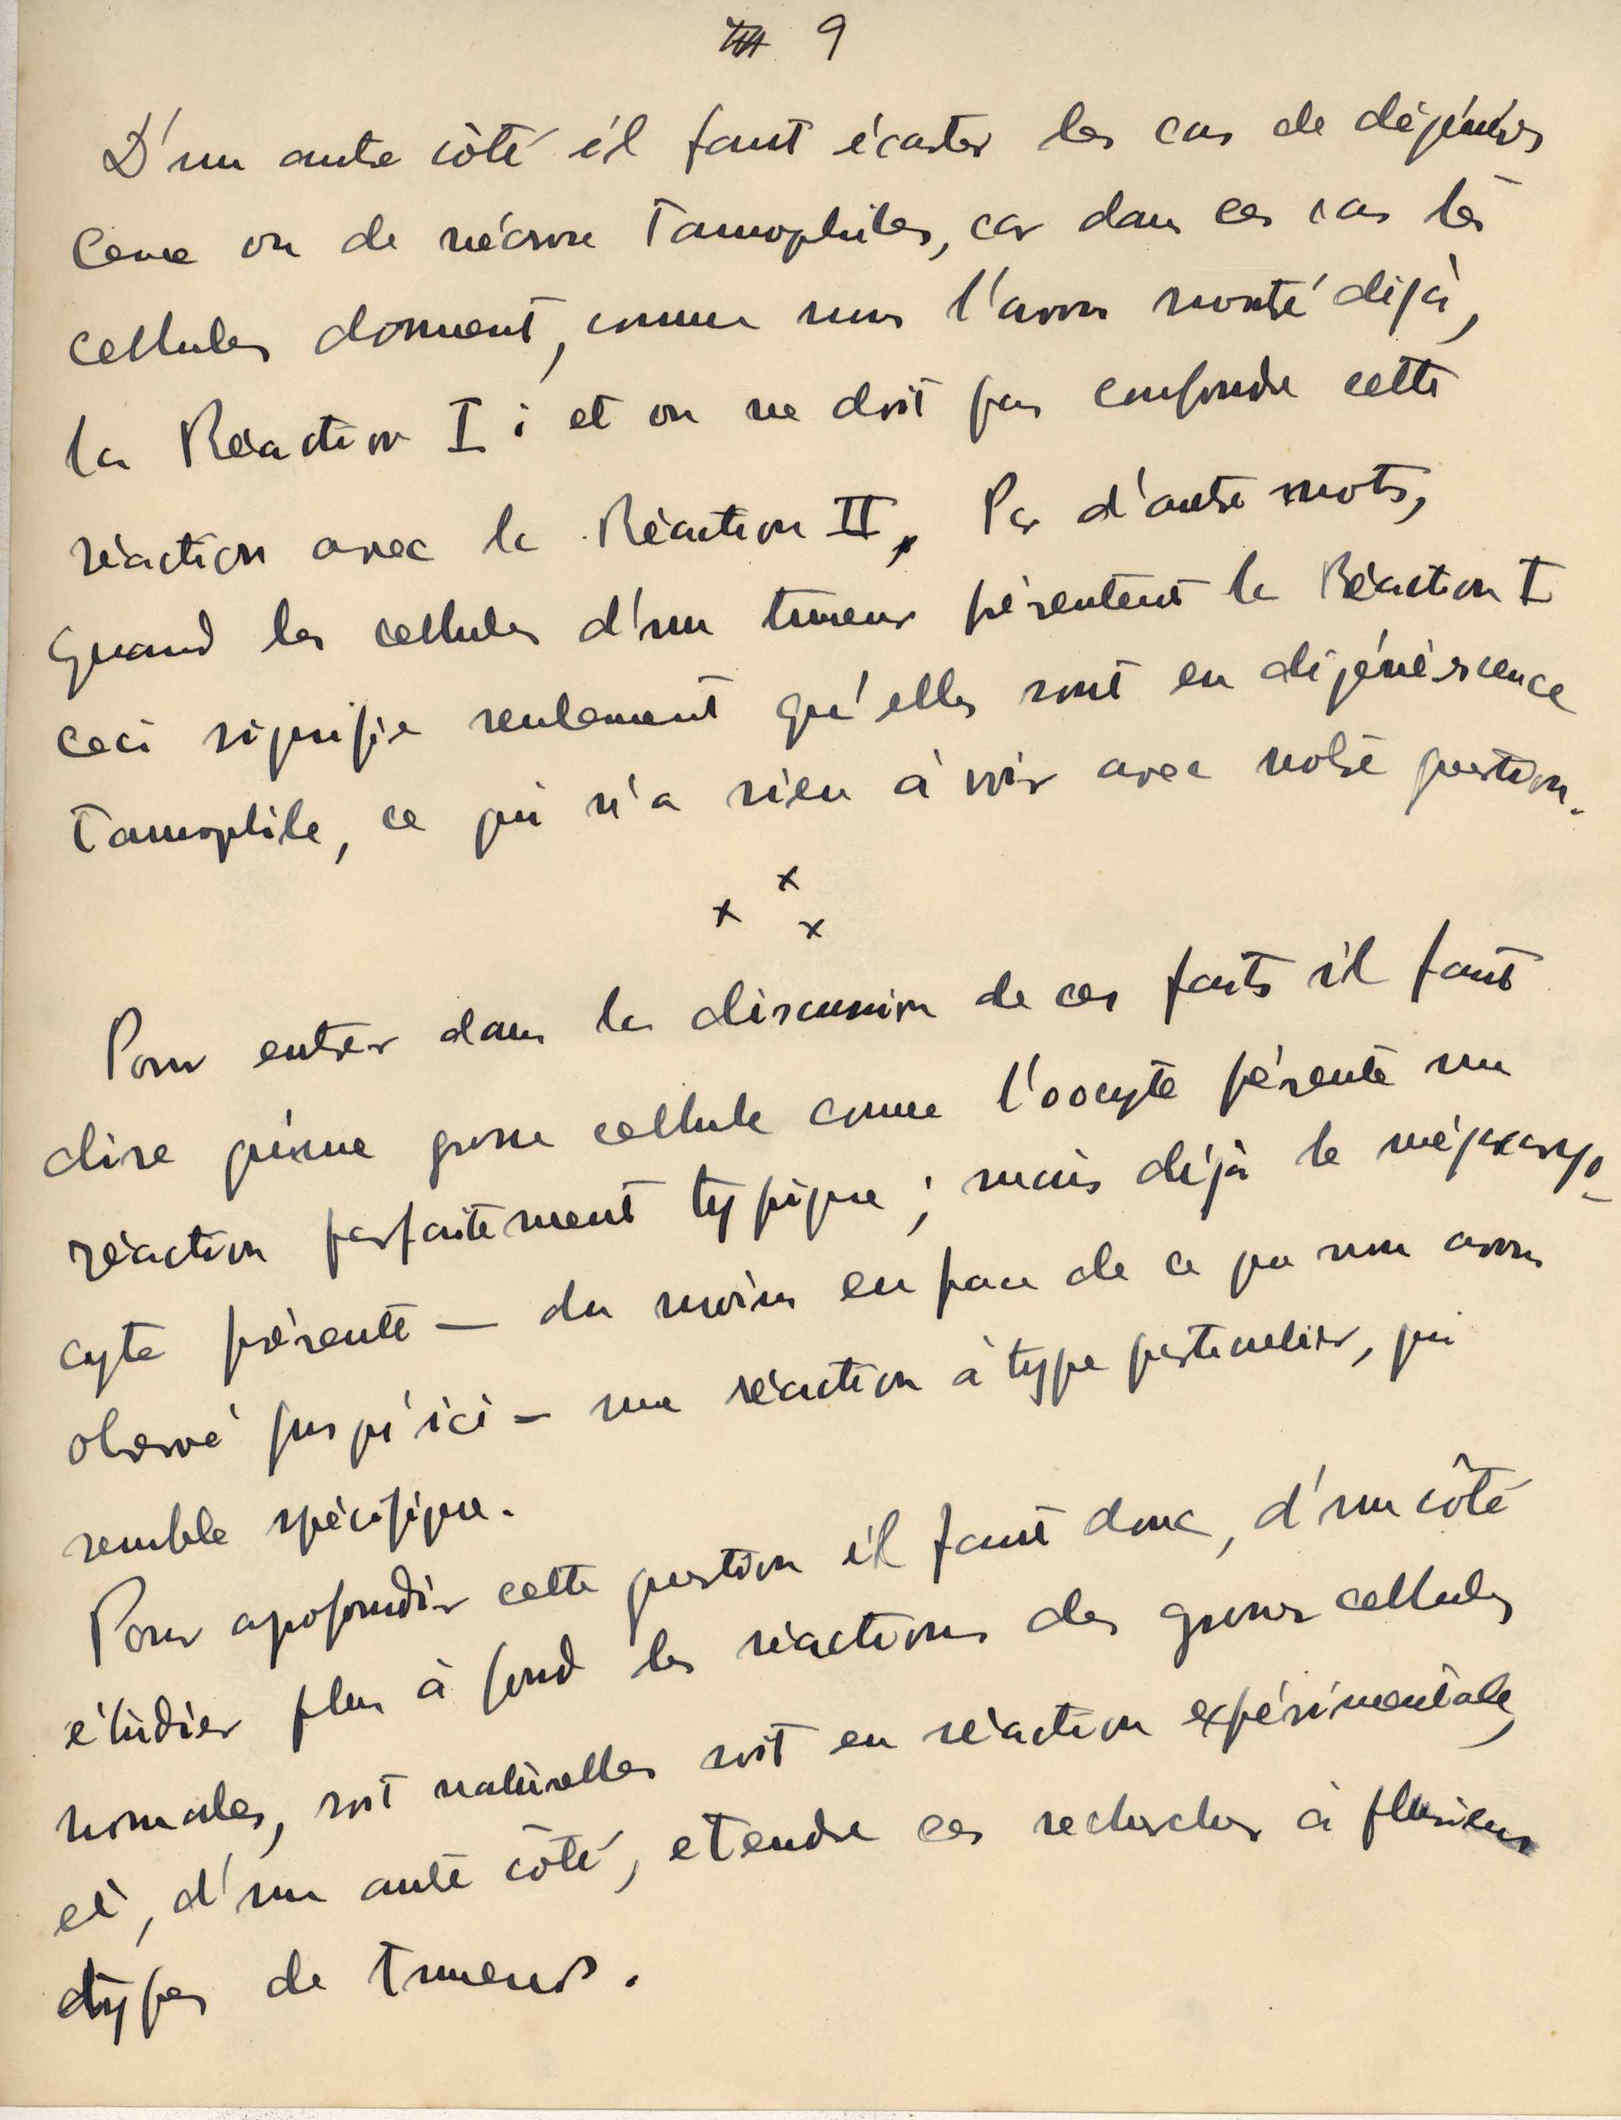 9
D'un autre côté il faut écarter les cas de dégéneres
cence ou de nécrose Tannophiles, car dans ces cas les
cellules donnent, comme nous l'avons montré déjà,
la Réaction I ; et on ne doit pas confondre cette
réaction avec la Réaction II. Par d'autre mots,
quand les cellules d'un tumeur présentent la Réaction I
ceci signifie seulement qu'elles sont en dégénérescence
Tannophile, ce qui n'a rien à voir avec notre question.
x x x
Pour entrer dans la discussion de ces faits il faut
dire qu'une grosse cellule comme l'oocyte présente une
réaction parfaitement typique ; mais déjà le mégacaryo-
cyte présente — du moins en face de ce que nous avons
observé jusqu'ici — une réaction à type particulier, qui
semble spécifique.
Pour apofondir cette question il faut donc, d'un côté
étudier plus à fond les réactions des grosses cellules
normales, soit naturelles soit en réaction expérimentale,
et, d'un autre côté, etendre ces recherches à plusieurs
types de tumeurs.